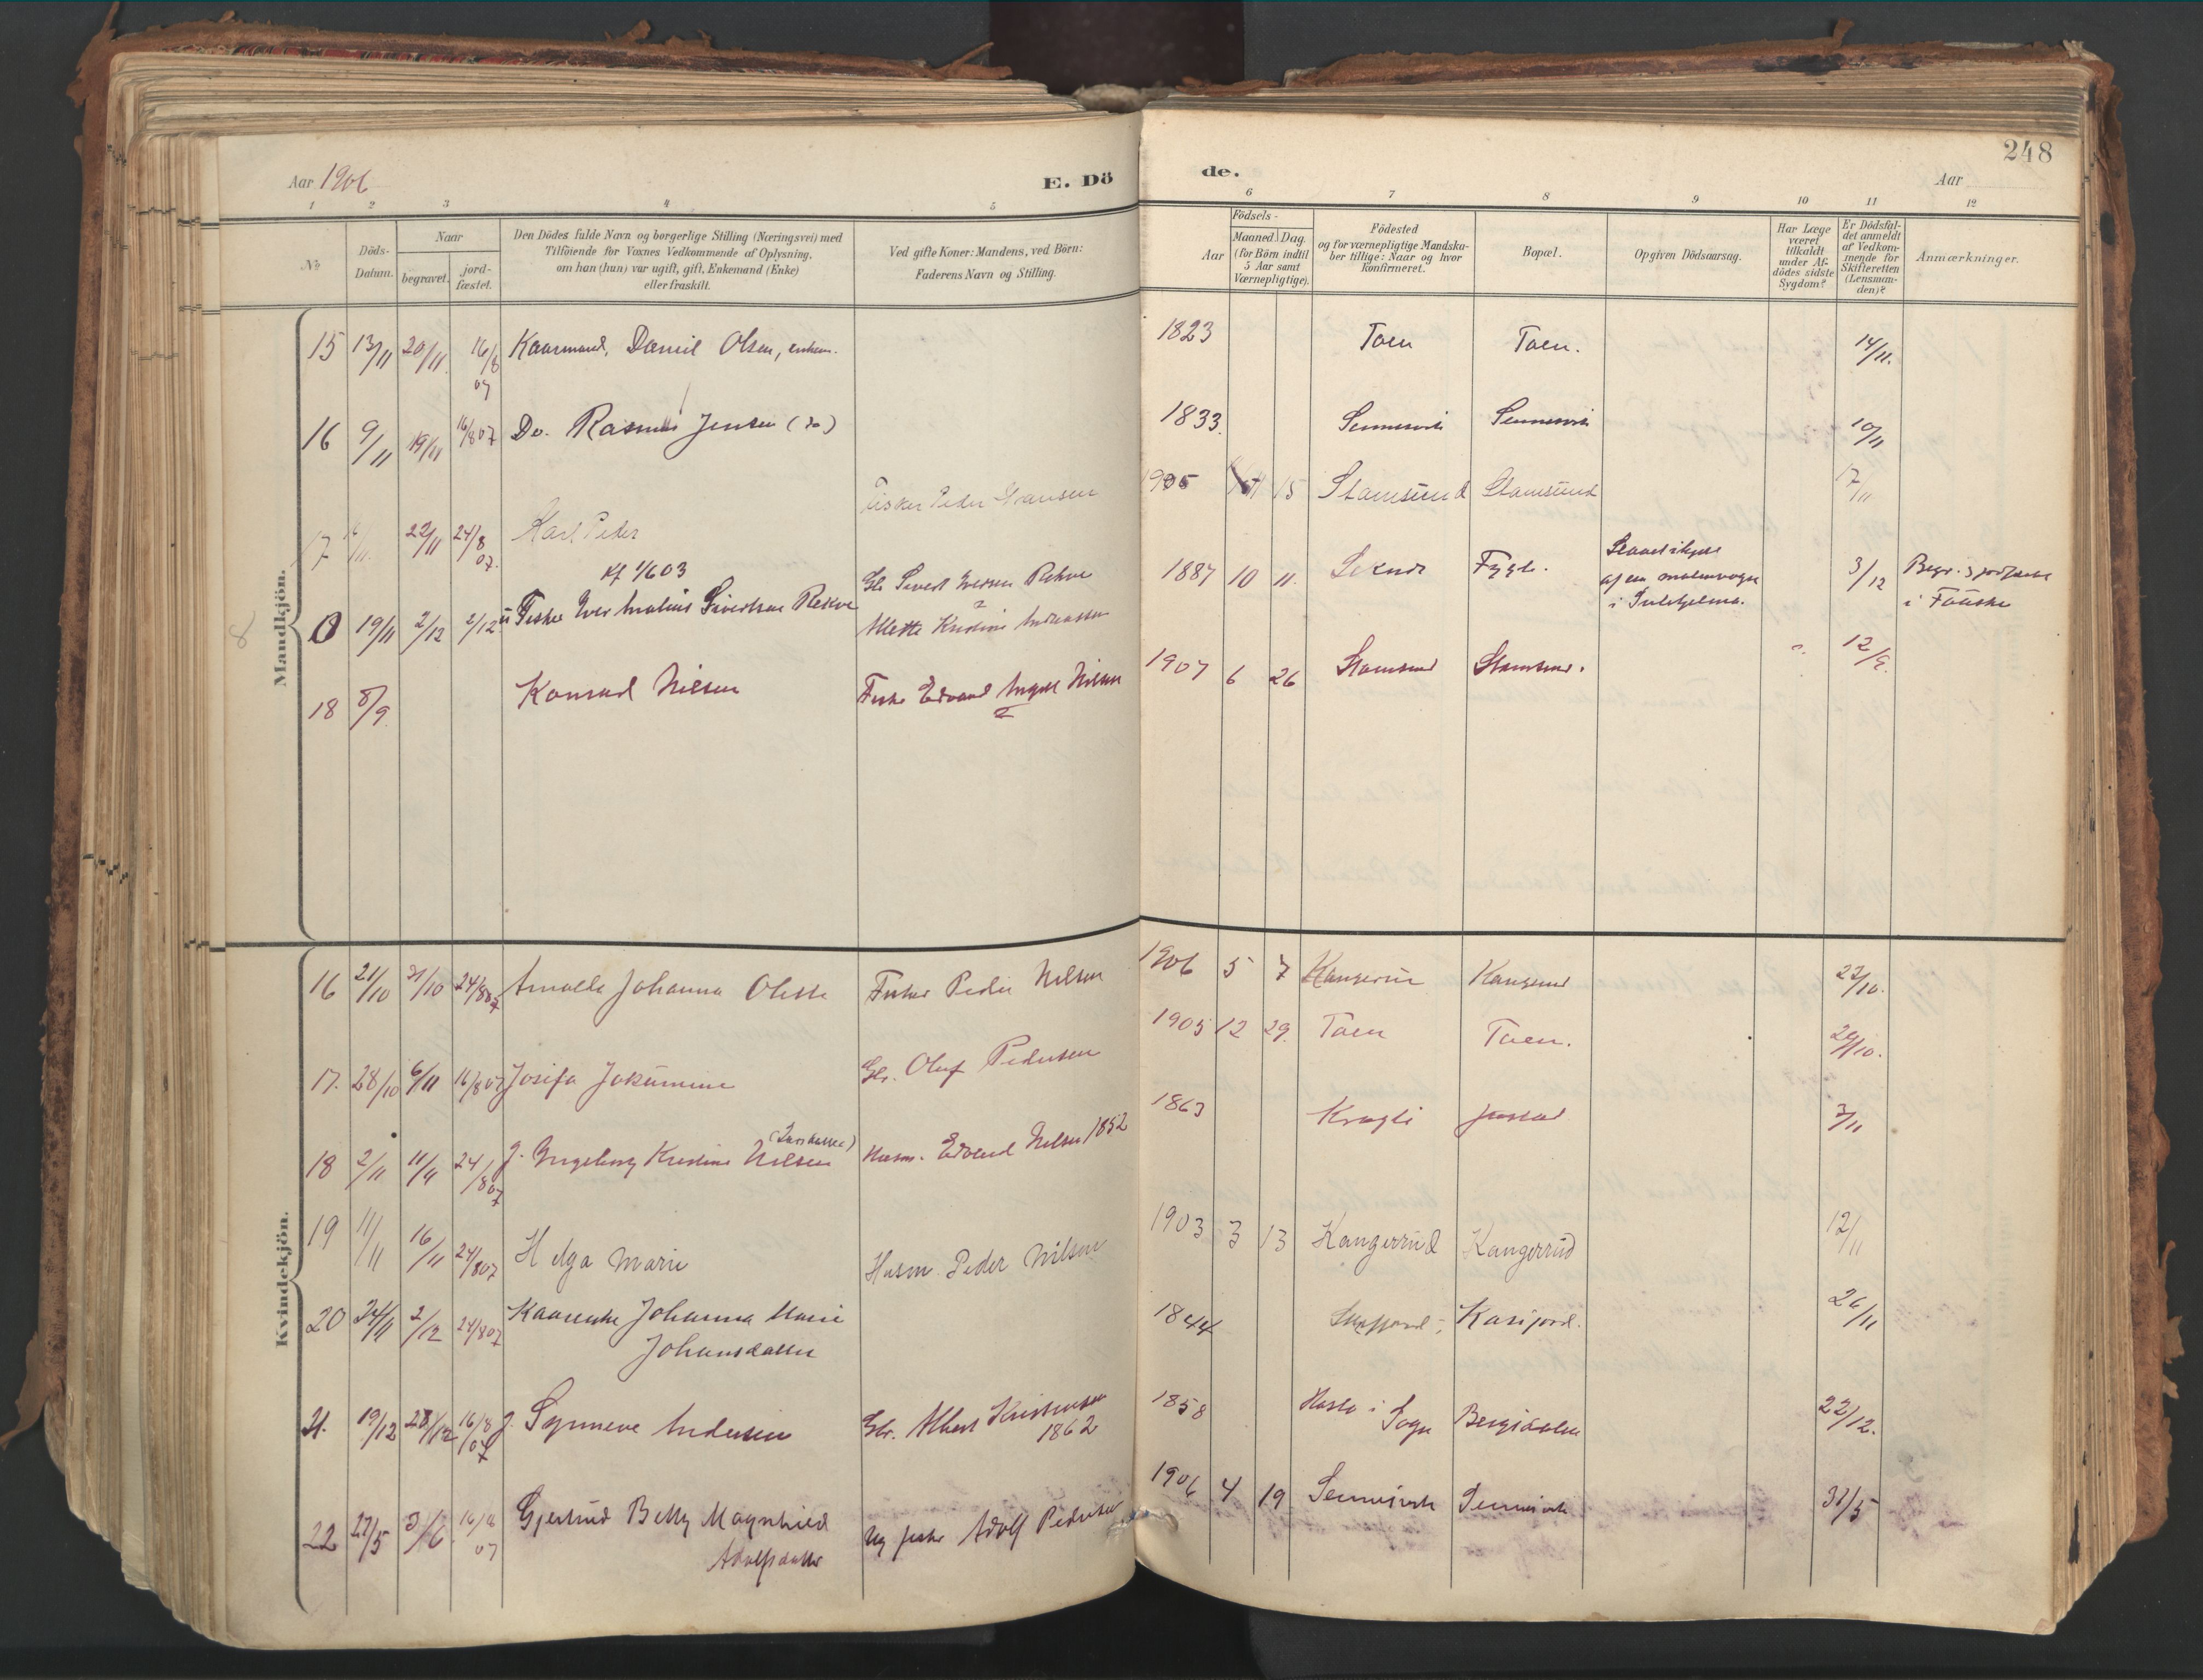 248
Aar 1906
E. Dö
de.
Aar
1 2 3 4 5 6 7 8 9 10 11 12
No
Döds-
Datum.
Naar
begravet.
jord-
fæstet.
Den Dödes fulde Navn og borgerlige Stilling (Næringsvei) med
Tilföiende for Voxnes Vedkommende af Oplysning,
om han (hun) var ugift, gift, Enkemand (Enke)
eller fraskilt.
Ved gifte Koner: Mandens, ved Börn:
Faderens Navn og Stilling.
Födsels-
Aar
Maaned. Dag.
(for Börn indtil
5 Aar samt
Værnepligtige).
Födested
og for værnepligtige Mandska-
ber tillige: Naar og hvor
konfirmeret.
Bopæl.
Opgiven Dödsaarsag.
Har Læge
været
tilkaldt
under Af-
dödes sidste
Sygdom?
Er Dödsfal-
det anmeldt
af Vedkom-
mende for
Skifteretten
(Lensman-
den)?
Anmærkninger.
Mandkjön.
15 13/11 20/11 16/8 07 Kaarmand, Daniel Olsen, enkem. 1823 Toen Toen. 14/11.
16 9/11 19/11 16/8 07 Do. Rasmus Jensen (do) 1833. Sennesvik Sennesvik 10/11
17 22/11 24/8 07. Karl Peder Fisker Peder Hansen 1905 15 Stamsund Stamsund 17/11
Kf 1/6 03
8
0 19/11 2/12 2/12 Fisker Iver Andreas Sivertsen Rekve Gbr. Sivert Iversen Rekve
Mette Kristine Andreassen
1887 10 11. Fygle. af en malmvogn
i Sulitjelma. 3/12 Begr. & jordfæstet
i Fauske
18 8/9 Konrad Nilsen Fisker Edvard Nilsen 1907 6 26 Stamsund Stamsund. 12/9.
Kvindekjön.
16 21/10 31/10 24/8 07 Johanna Fisker Peder Nilsen 1906 5 7 Kangerur Kangerud 22/10.
17. 28/10 6/11 16/8 07 Josifa Jakumine Gbr. Oluf Pedersen 1905 12 29. Toen Toen. 29/10.
18 2/11 11/11 24/8 07 g. Ingeborg Kristine Nilsen Husm. Edvard Nilsen 1852 1863 Kragli Justad 3/11
19 11/11 16/11 24/8 07 Helga Marie Husm. Peder Nilsen 1903 3 13 Kangerrud Kangerrud 12/11
20 24/11 2/12 24/8 07 Kaarenke Johanna Marie
Johansdatter 1844 26/11
21. 19/12 28/12 16/8 07 g. Synneve Andersen Gbr. Albert Kristensen
1862 1858 Haslo i
Sogn 22/12.
22 27/5 3/6 16/8 07 Gjertrud Betty Magnhild
Adolfsdatter Ug fisker Adolf Pedersen 1906 4 19 Sennesvik Sennesvik 31/5